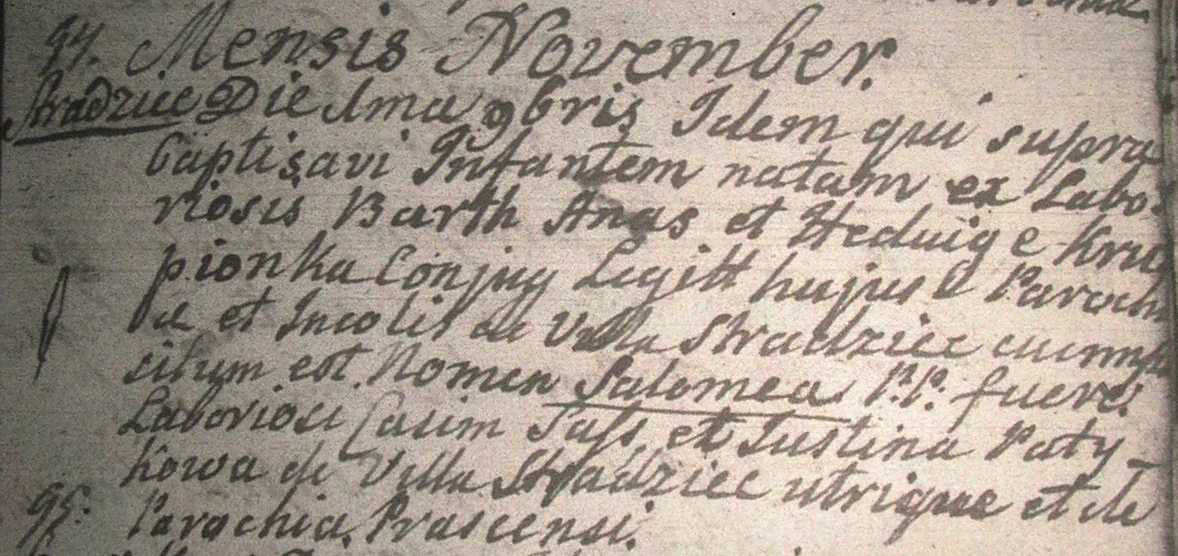 94. Mensis November.
Stradziec Die 1ma 9bris Idem qui supra
baptisavi Infantem natam ex Labo-
riosis Barth Anas et Hedwige Kru
pionka Conjug Legitt hujus
et Incolis de Villa Stradziec
situm est Nomen Salomea. P.P. fuere
Laboriosi Casim Sass et Justina Paty
kowa de Villa Stradziec utrique et de
95. Parochia Prascensi.